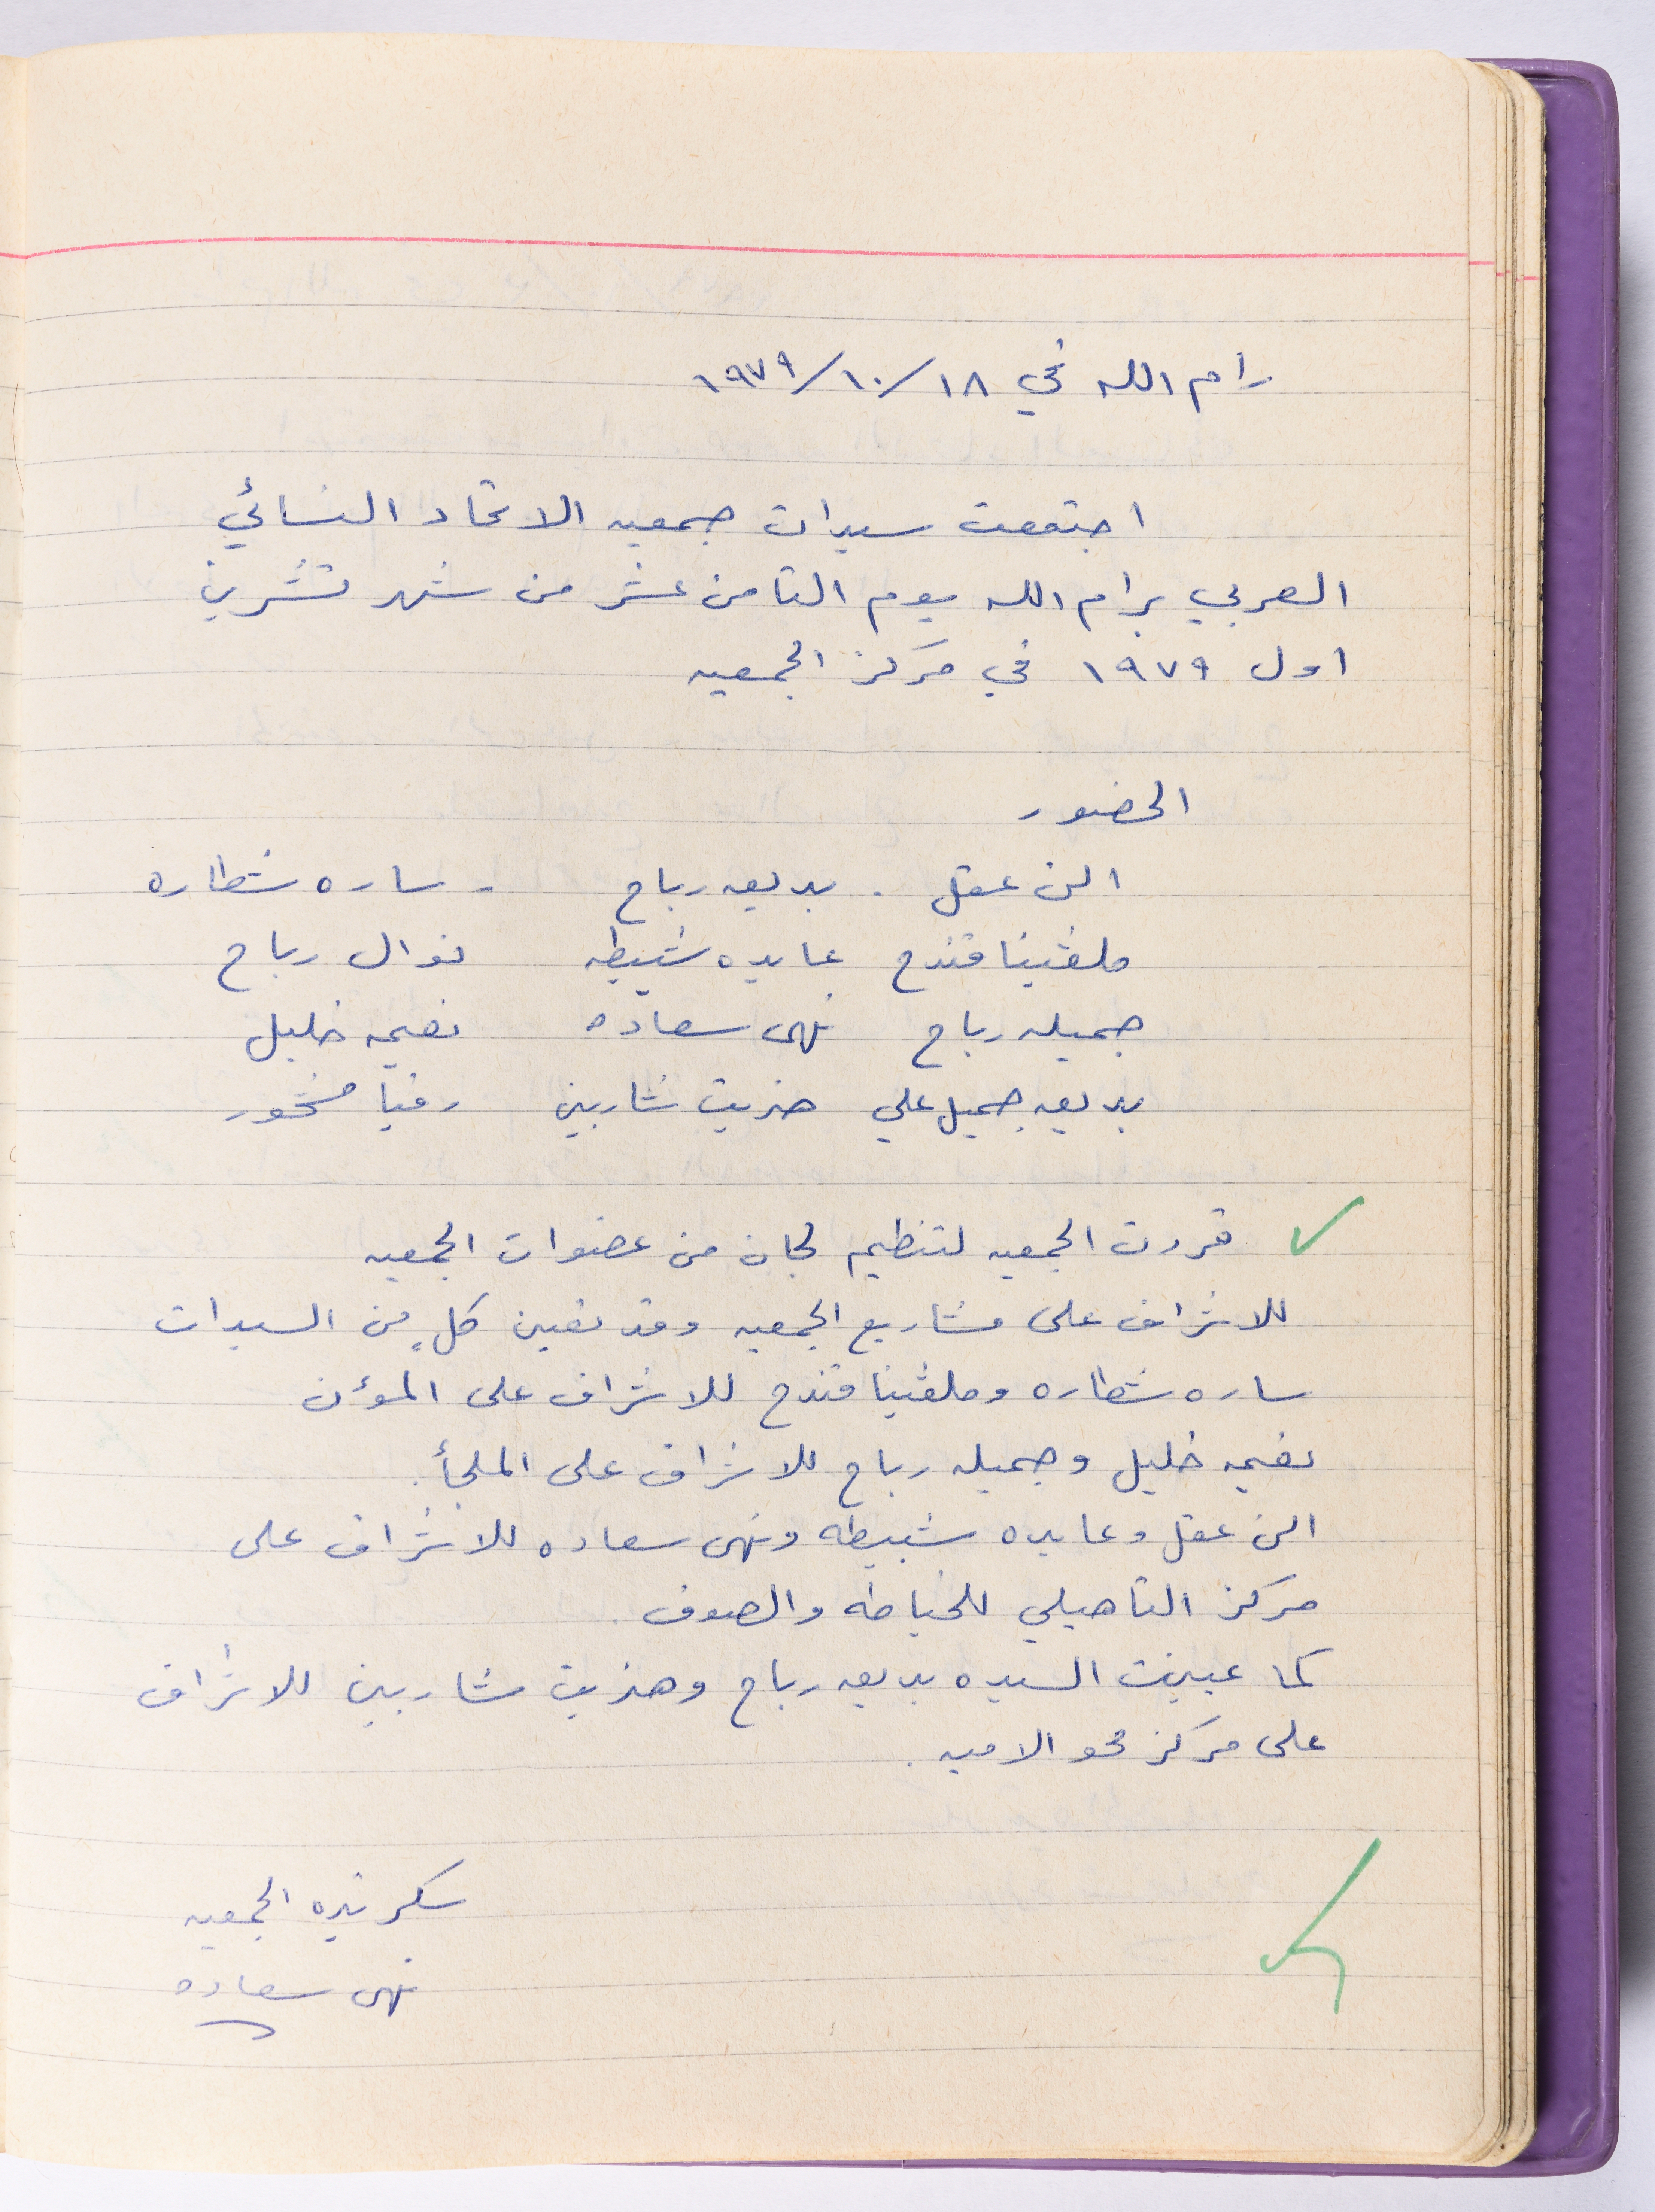 رام الله في ١٨/١٠/١٩٧٩
اجتمعت سيدات جمعيه الاتحاد النسائي
العربي برام الله يوم الثامن عشر من شهر تشرين
اول ١٩٧٩ في مركز الجمعيه
الحضور
الن عقل . بديعه رباح - ساره شطاره
ملڤينا قندح عايده شبيطه نوال رباح
جميله رباح نهى سعاده نعيمه خليل
بديعه جميل علي هنريت شاربين رفيا منخور
قررت الجمعيه لتنظيم لجان من عضوات الجمعيه
للاشراف على مشاريع الجمعيه وقد تعين كلٍ من السيدات
ساره شطاره وملڤينا قندح للاشراف على المؤن
نعيمه خليل وجميله رباح للاشراف على الملجأ.
الن عقل وعايده شبيطه ونهى سعاده للاشراف على
مركز التاهيلي للخياطه والصوف.
كما عينت السيده بديعه رباح وهنريت شاربين للاشراف
على مركز محو الاميه.
سكرتيره الجمعيه
نهى سعاده